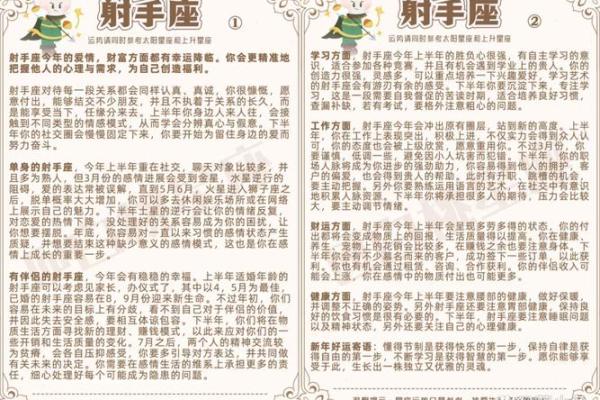 射手座
①
运势请同时参考太阳星座和上升星座
射手座今年的爱情，财富方面都有幸运降临。你会更精准地
把握他人的心理与需求，为自己创造福利。
射手座对待每一段关系都会同样认真，真诚，你很慷慨，愿
意付出，能够结交不少朋友，并且不执着于关系的长久，而
是能享受当下，任缘份来去。上半年你身边人来人往，会接
触到不同类型的情感模式，从而学会辨认真心与假意。下半
年你的社交会慢慢固定下来，你要开始为留住身边的爱而
努力奋斗。
单身的射手座，今年上半年重在社交，聊天对象比较多，并
且多为熟人，但3月份的感情进展会受到金星，水星逆行的
阻碍，爱的表达常被误解，直到5月6月，火星进入狮子座之
后，脱单概率大大增加，你可以多去休闲娱乐场所或在网络
上展示自己的魅力。下半年土星的逆行会让你的情绪反复，
对恋爱的热情下降，没处理好的关系容易成为你的困扰，让
你想要摆脱。年底，你容易对一直以来习惯的感情状态产生
质疑，并想要结束这种缺少意义的感情模式，这也是你在感
情上成长的重要一步。
有伴侣的射手座，今年会有稳稳的幸福。上半年适婚年龄的
射手座可以考虑见家长，办仪式了，其中以4，5月为最佳，
已婚的射手座容易在8，9月份迎来新生命。不过年初，你们
容易在未来的目标上有分歧，看不到自己对于伴侣的价值，
并因此失去安全感，要相互体谅包容。下半年，你们将在物
质生活方面寻找新的理财，赚钱模式，以此来应对你们的一
些开销和生活质量的变化。7月之后，两个人的精神交流较
为贫瘠，会各自压抑感受，你要多引导对方表达，并共同做
有关未来的决定。你需要在感情生活的维系上承担更多的责
任，细心处理好每个可能成为隐患的问题。
射手座
②
运势请同时参考太阳星座和上升星座
学习方面，射手座今年上半年的胜负心很强，有自主学习的意
识，适合参加各种竞赛，并且有机会遇到学业上的贵人。你的
创造力很强，灵感多，可以重点培养一下兴趣爱好，学习艺术
的射手座会有游刃有余的感受。下半年你要沉淀下来，专注学
习，这是一段需要自我督促的苦读时期，适合培养良好习惯，
查漏补缺，若有考试，要格外注意粗心的问题。
工作方面，射手座今年会冲出原有圈层，站到新的高度。上半
年，你在工作上表现突出，积极上进，领导力和实力会得到众人认
可，你的态度也会被上级欣赏，愿意重用。不过3月份，你要
谨慎，低调一些，避免因小人坑害而犯错。下半年，你的职
场人脉将成为你进步的强劲助力，你很容易得到他人的拥护，
客户的偏爱，也会更忙碌。此时有升职、跳槽的机会，
要主动把握。另外你要熟练运用语言的艺术，在社交中有意识
地积累人脉资源。下半年，你将承担很多人的期待，压力会比较
大，要主动调节情绪。
财运方面，射手座今年上半年会呈现多劳多得的状态，你的付
出都将会变成物质上的回报，生活质量得以提高。你在健康，
养生，宠物上的花销会比较多，在赚钱之余也要注意身体。下
半年你会有不少慕名而来的客户，成功签下一些订单，以此获
利。你也有机会通过租赁、咨询、合作获利。你的伴侣收入可
能会上涨，你在感情中的物质付出也可能更多。
健康方面，射手座今年上半年要注意腰部的健康，做好保暖，
并调整不正确的姿势。另外射手座还要注意胃部健康。保持良
好的饮食习惯是很有必要的。下半年，射手座要注意睡眠问题
以及精神状态，另外还要关注自己的心理健康。
新年好运寄语：懂得节制是获得快乐的第一步，保持自律是获
得自由的第一步，不断学习是获得智慧的第一步。愿你能够享
受于此，生长出一株独立又优雅的灵魂。